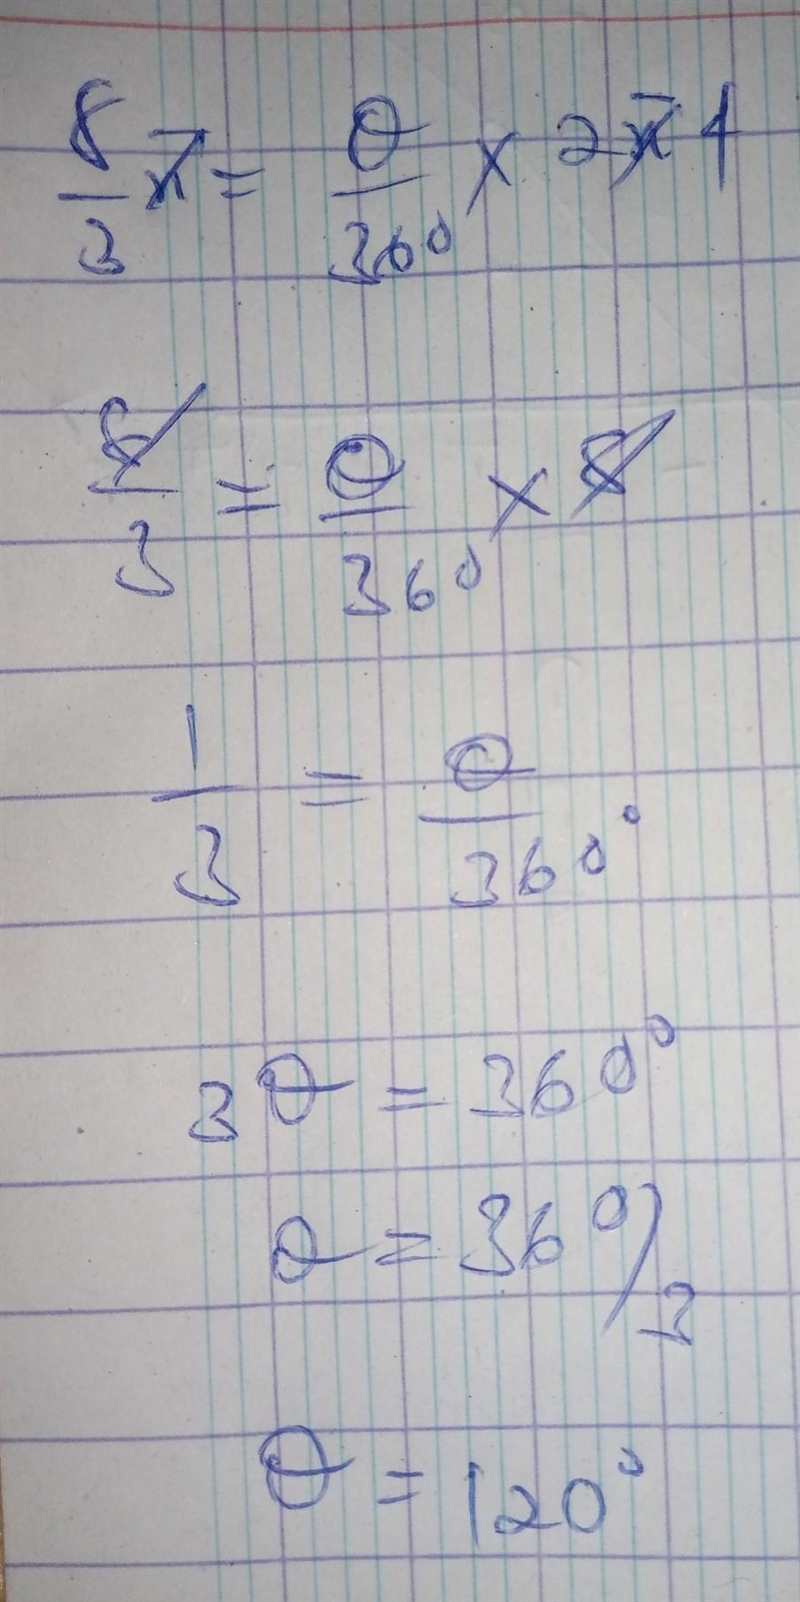 8/3 π = θ/360 × 2π4
8/3 = θ/360 × 8
1/3 = θ/360°
3θ = 360°
θ = 360/3
θ = 120°